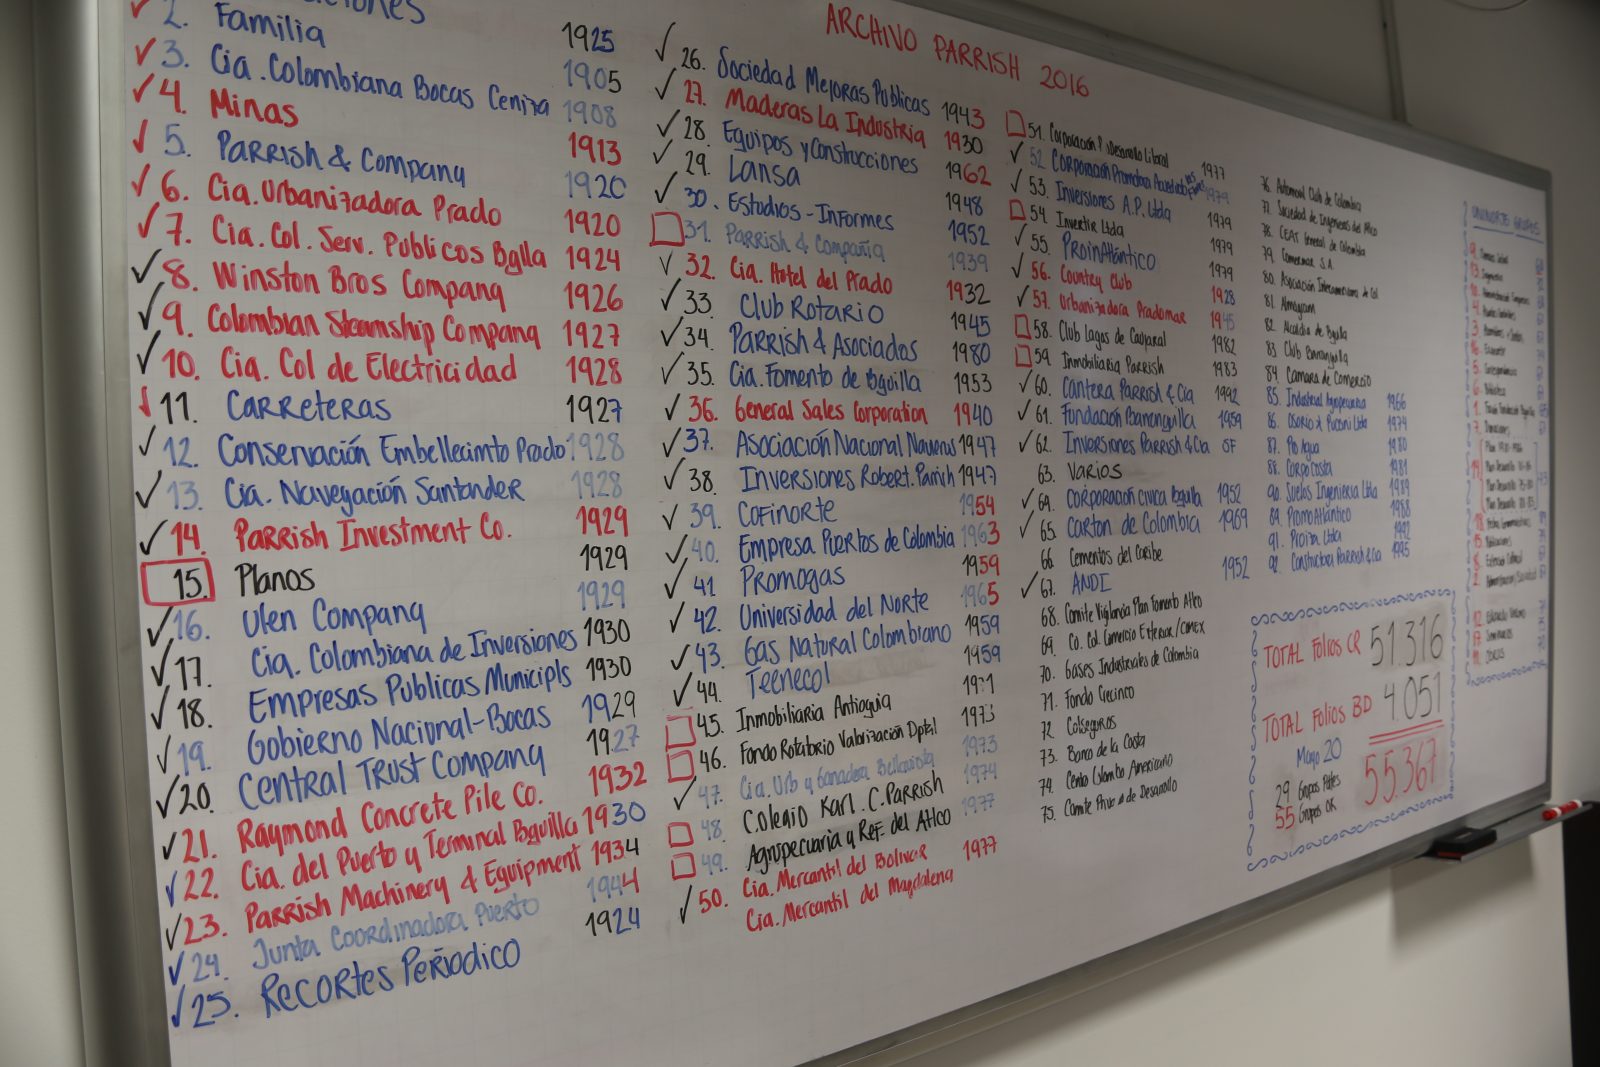 ARCHIVO PARRISH 2016
2. Familia 1925
3. Cia. Colombiana Bocas Ceniza 1905
4. Minas 1908
5. Parrish & Company 1913
6. Cia. Urbanizadora Prado 1920
7. Cia. Col. Serv. Publicos Bqlla 1920
8. Winston Bros Company 1924
9. Colombian Steamship Company 1926
10. Cia. Col de Electricidad 1927
11. Carreteras 1928
12. Conservación Embellecimto Prado 1927
13. Cia. Navegación Santander 1928
14. Parrish Investment Co. 1928
15. Planos 1929
16. Ulen Company 1929
17. Cia. Colombiana de Inversiones 1929
18. Empresas Publicas Municipls 1930
19. Gobierno Nacional-Bocas 1930
20. Central Trust Company 1929
21. Raymond Concrete Pile Co. 1927
22. Cia. del Puerto y Terminal Bquilla 1932
23. Parrish Machinery & Equipment 1930
24. Junta Coordinadora Puerto 1934
25. Recortes Periodico 1944
1924
26. Sociedad Mejoras Publicas 1943
27. Maderas La Industria 1930
28. Equipos y Construcciones 1962
29. Lansa 1948
30. Estudios-Informes 1952
31. Parrish & Compañia 1939
32. Cia. Hotel del Prado 1932
33. Club Rotario 1945
34. Parrish & Asociados 1980
35. Cia. Fomento de Bquilla 1953
36. General Sales Corporation 1940
37. Asociación Nacional Navieros 1947
38. Inversiones Robert. Parrish 1947
39. Cofinorte 1954
40. Empresa Puertos de Colombia 1963
41 Promogas 1959
42. Universidad del Norte 1965
43. Gas Natural Colombiano 1959
44. Tecnecol 1959
45. Inmobiliaria Antioquia 1971
46. Fondo Rotatorio Valorización Dptal 1973
47. Cia. Urb y Ganadera Bellavista 1973
48. Colegio Karl. C. Parrish 1974
49. Agropecuaria y Ref. del Atlco 1977
50. Cia. Mercantil del Bolivar 1977
Cia. Mercantil del Magdalena
51. Corporación P. Desarrollo Litoral 1977
52. Corporación Promotora 1979
53. Inversiones A.P. Ltda 1979
54. Invertir Ltda 1979
55. Proinatlántico 1979
56. Country Club 1928
57. Urbanizadora Pradomar 1945
58. Club Lagos de Caujaral 1982
59. Inmobiliaria Parrish 1983
60. Cantera Parrish & Cia 1992
61. Fundación Barranquilla 1959
62. Inversiones Parrish & Cia SF
63. Varios
64. Corporación Civica Bquilla 1952
65. Carton de Colombia 1969
66. Cementos del Caribe
67. ANDI 1952
68. Comite Vigilancia Plan Fomento Atlco
69. Co. Col. Comercio Exterior/COMEX
70. Gases Industriales de Colombia
71. Fondo Grecinco
72. Colseguros
73. Banco de la Costa
74. Centro Colombo Americano
75. Comite Privado de Desarrollo
76. Automovil Club de Colombia
77. Sociedad de Ingenieros del Atlco
78. CEAT General de Colombia
79. Comermar S.A.
80. Asociación Interamericana de Col
81. Almagram
82. Alcaldia de Bquilla
83. Club Barranquilla
84. Camara de Comercio
85. Industrial Agropecuaria 1966
86. Osorio & Puccini Ltda 1974
87. Pro Agua 1980
88. Corpo Costa 1981
90. Suelos Ingenieria Ltda 1989
89. PromoAtlántico 1988
91. Proita Ltda 1992
92. Constructora Parrish & Cia 1995
TOTAL Folios CR 51.316
TOTAL Folios BD 4.051
55.367
Mayo 20
29 Grupos Pdtes
55 Grupos OK
UNINORTE GRUPOS